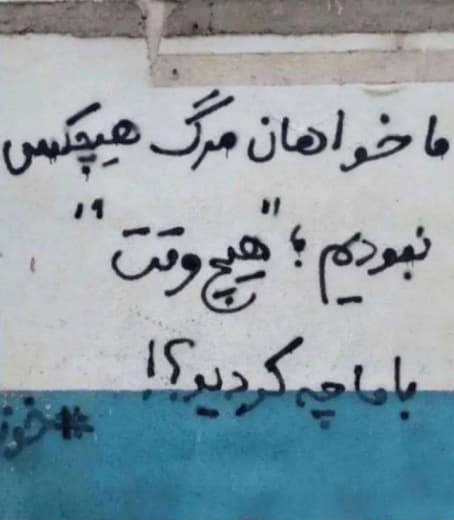 ما خواهان مرگ هیچکس
نبودیم؛ "هیچ وقت"
با ما چه کردید؟!